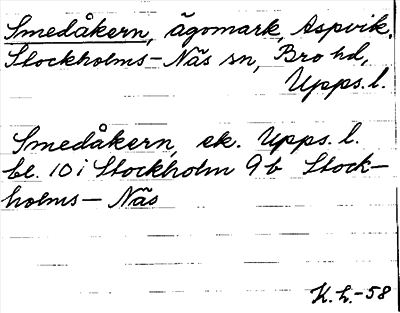 Smedåkern, ägomark, Aspvik,
Stockholms-Näs sn, Bro hd,
Upps. l.
Smedåkern, ek. Upps. l.
bl. 10 i Stockholm 9b Stock-
holms-Näs
K.L.-58